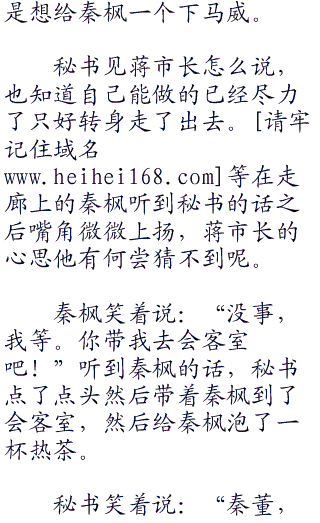 是想给秦枫一个下马威。
秘书见蒋市长怎么说，
也知道自己能做的已经尽力
了只好转身走了出去。[请牢
记住域名
www.heihei168.com]等在走
廊上的秦枫听到秘书的话之
后嘴角微微上扬，蒋市长的
心思他有何尝猜不到呢。
秦枫笑着说：“没事，
我等。你带我去会客室
吧！”听到秦枫的话，秘书
点了点头然后带着秦枫到了
会客室，然后给秦枫泡了一
杯热茶。
秘书笑着说：“秦董，